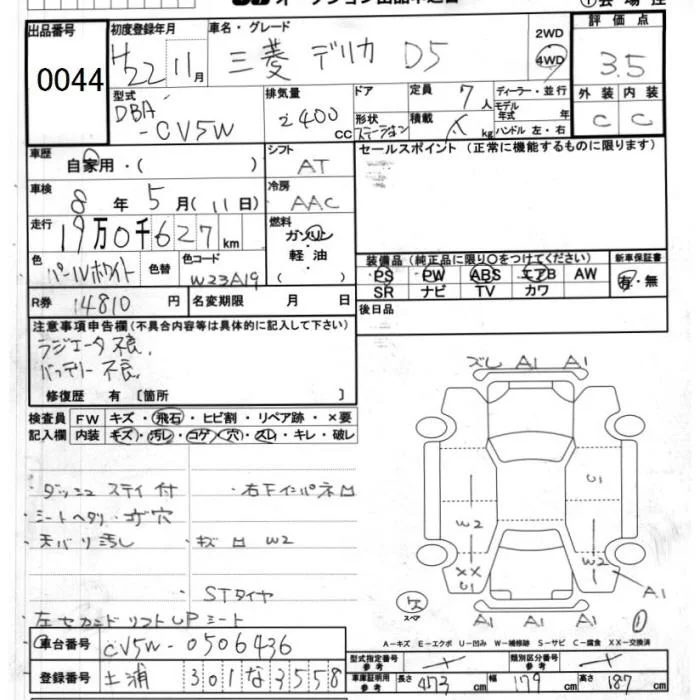 オークション出品申込書
①会場控
出品番号 初度登録年月 車名・グレード 2WD 評価点
0044 H22 11月 三菱 デリカ D5 4WD 3.5
型式 排気量 ドア 定員 7人 ディーラー・並行 外装 内装
DBA-CV5W 2400cc 形状 ステーション 積載 kg モデル年式 年 ハンドル 左・右 C C
車歴 自家用・( ) シフト AT セールスポイント (正常に機能するものに限ります)
車検 8年 5月(11日) 冷房 AAC
走行 19万0千627km 燃料 ガソリン 軽油 ( )
色 パールホワイト 色替 色コード W23A19
装備品 (純正品に限り○をつけてください) 新車保証書
PS PW ABS エアB AW 有・無
SR ナビ TV カワ
R券 14810円 名変期限 月 日 後日品
注意事項申告欄(不具合内容等は具体的に記入して下さい)
ラジエータ不良.
バッテリー不良.
修復歴 有 [箇所 ]
検査員 FW キズ・飛石・ヒビ割・リペア跡・×要
記入欄 内装 キズ・汚レ・コゲ・穴・スレ・キレ・破レ
・ダッシュ ステイ付 ・右下インパネロ
・シートヘタリ・コゲ穴
・天バリ汚し ・キズ ロ W2
STタイヤ
左セカンドリフトUPシート
ズレ A1 A1
C1
W2
XX
C1
W2
A1
スペア
A1 A1 A1
①
A-キズ E-エクボ U-凹み W-補修跡 S-サビ C-腐食 XX-交換済
車台番号 CV5W-0506436 型式指定番号 参考 類別区分番号 参考
登録番号 土浦 301 な 3558 車庫証明用 参考 長さ 473cm 幅 179cm 高さ 187cm